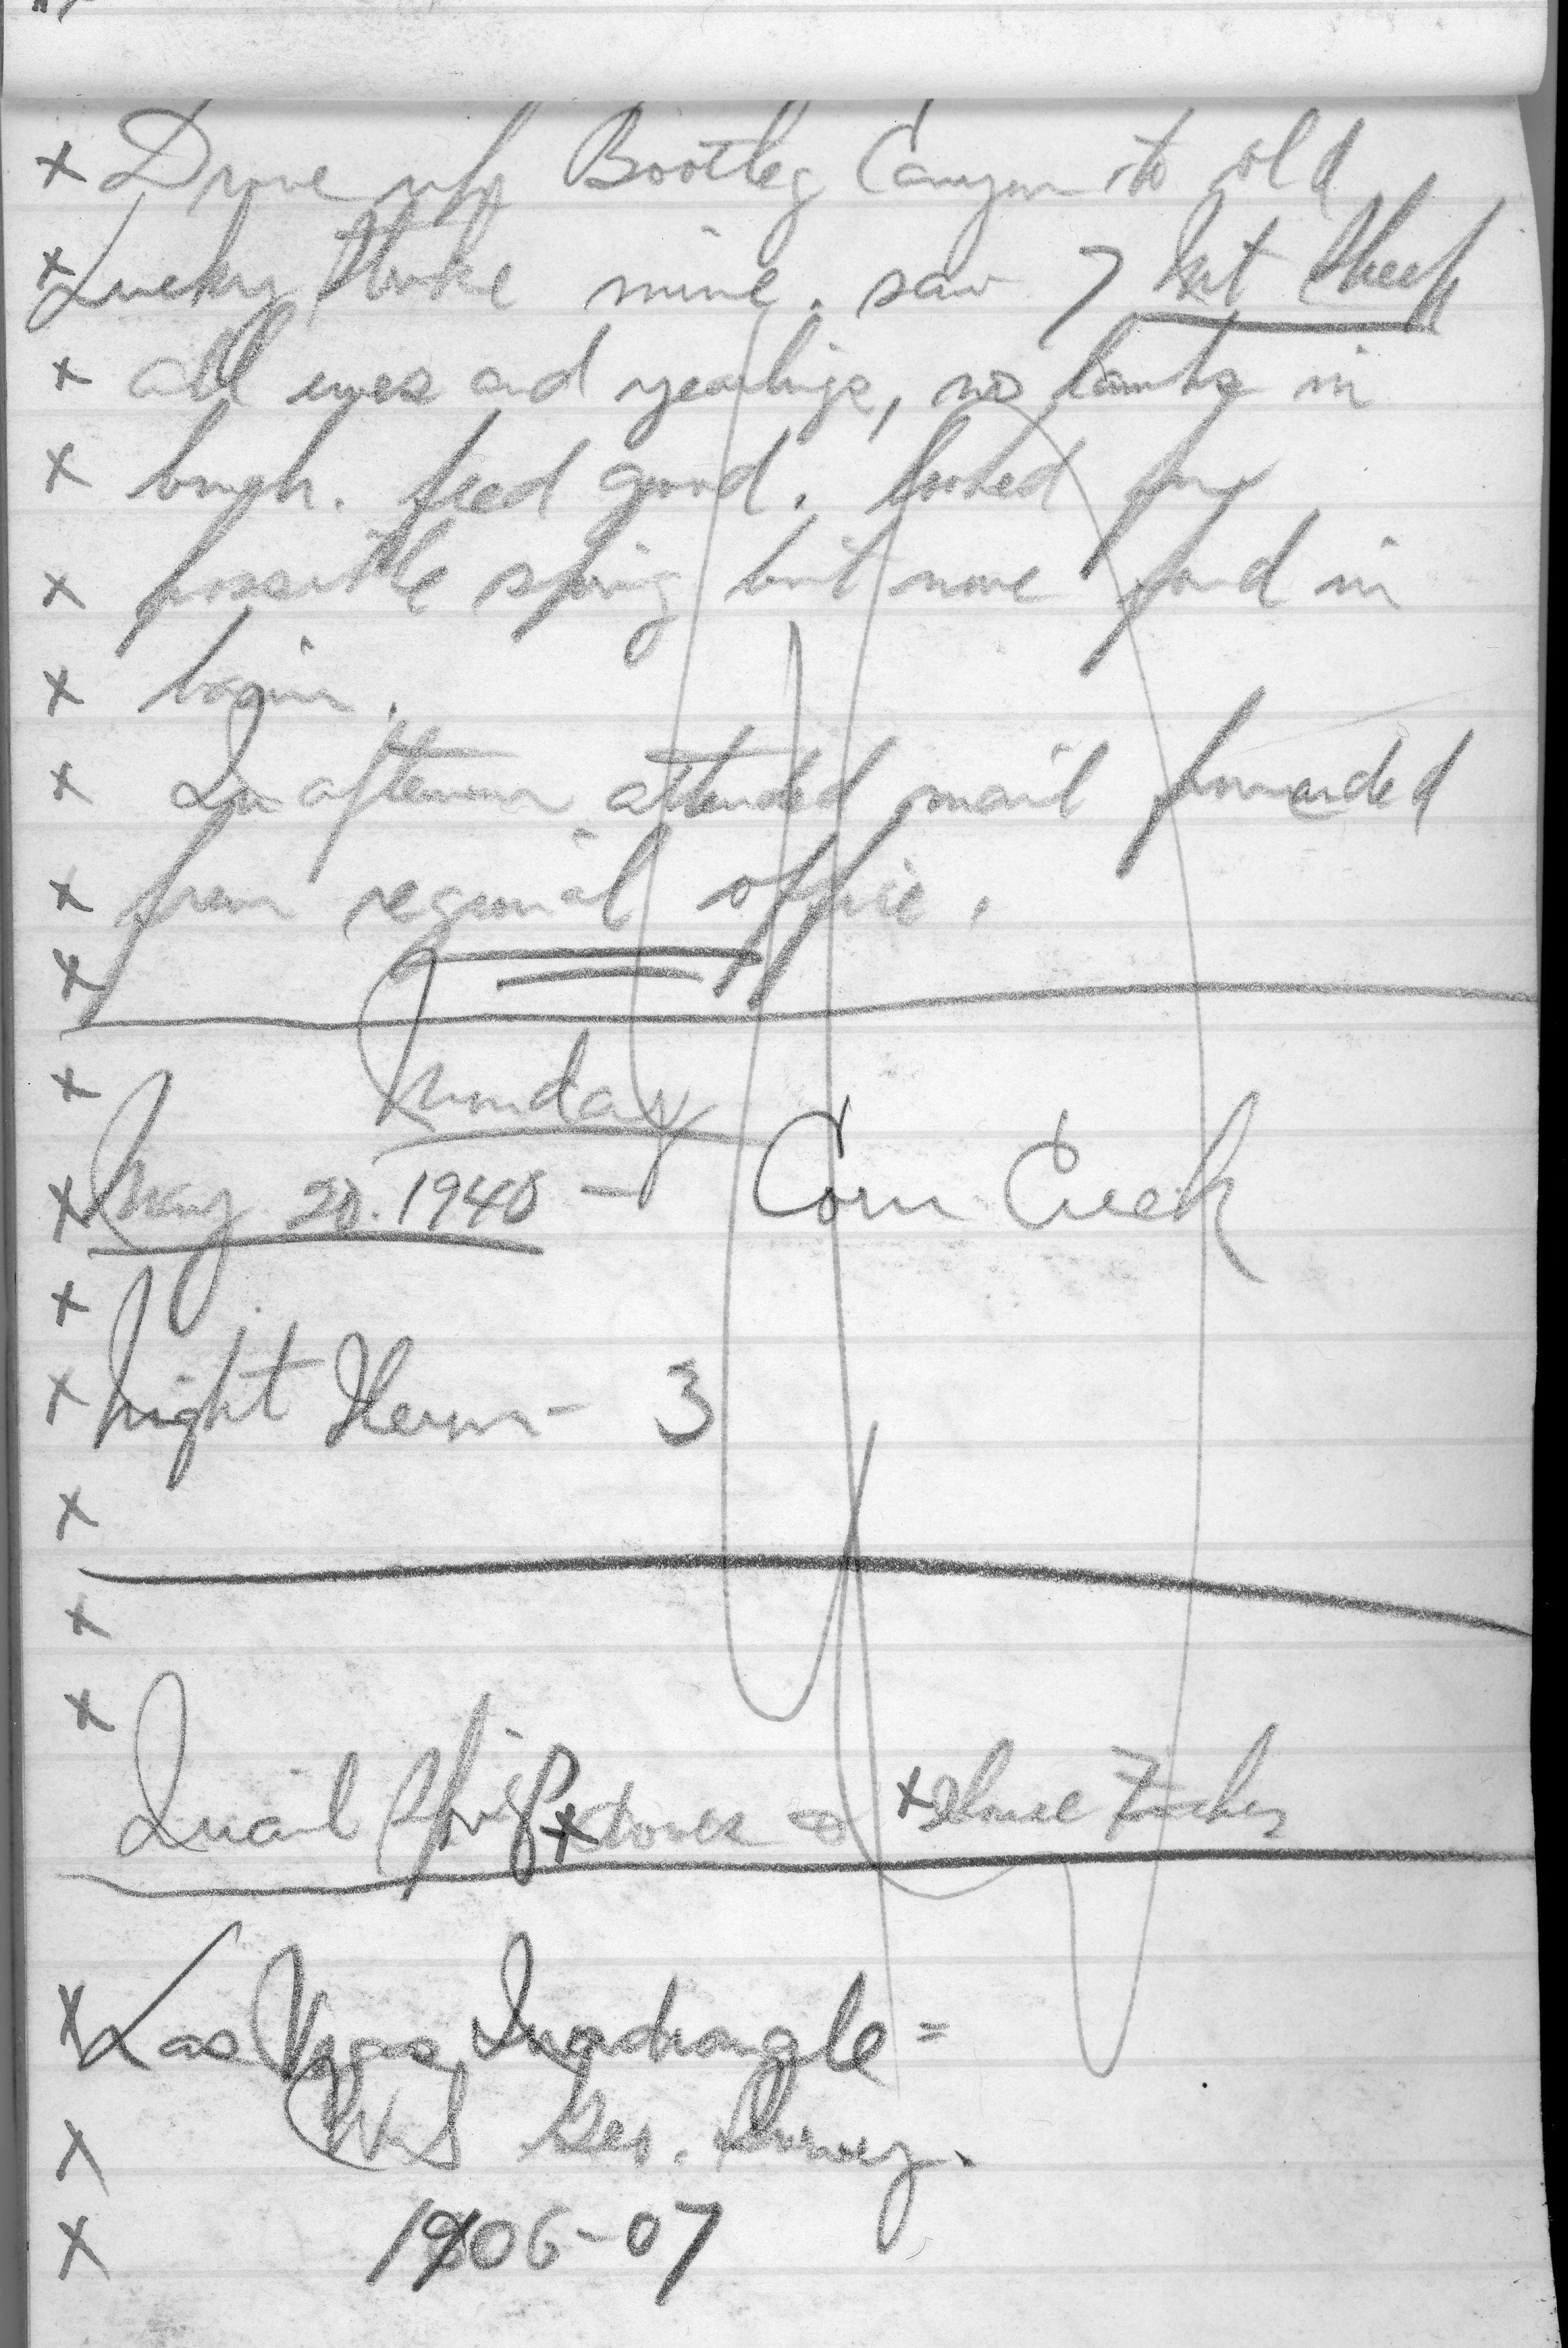 x Drove up Bootleg Canyon to old
x Lucky Strike mine. saw 7 Mt Sheep
x all ewes and yearlings, no lambs in
x bunch. feed good. looked for
x possible spring but none found in
x basin.
x In afternoon attended mail forwarded
x from regional office.
x
x Monday
x May 20. 1940 - Corn Creek
x
x Night Herm - 3
x
x
x
Quail Spring x doves - x House Finches
x Las Vegas Quadrangle =
x U.S. Geo. Survey.
x 1906-07